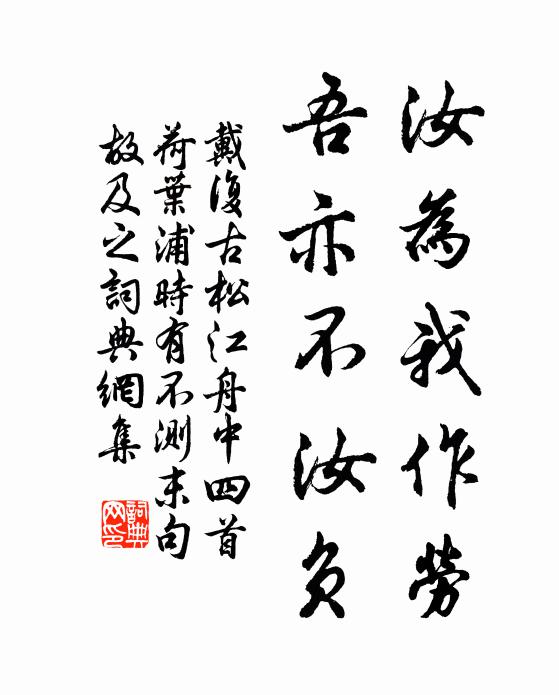 汝為我作勞
吾亦不汝負
戴復古松江舟中四首
荷葉浦時有不測末句
故及之詞典網集
詞典网印